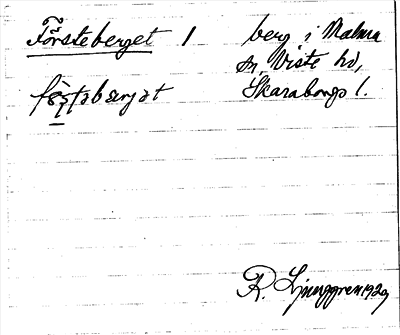 Försteberget 1 berg i Malma
sn, Viste hd,
Skaraborgs l.
R. Ljunggren 1929